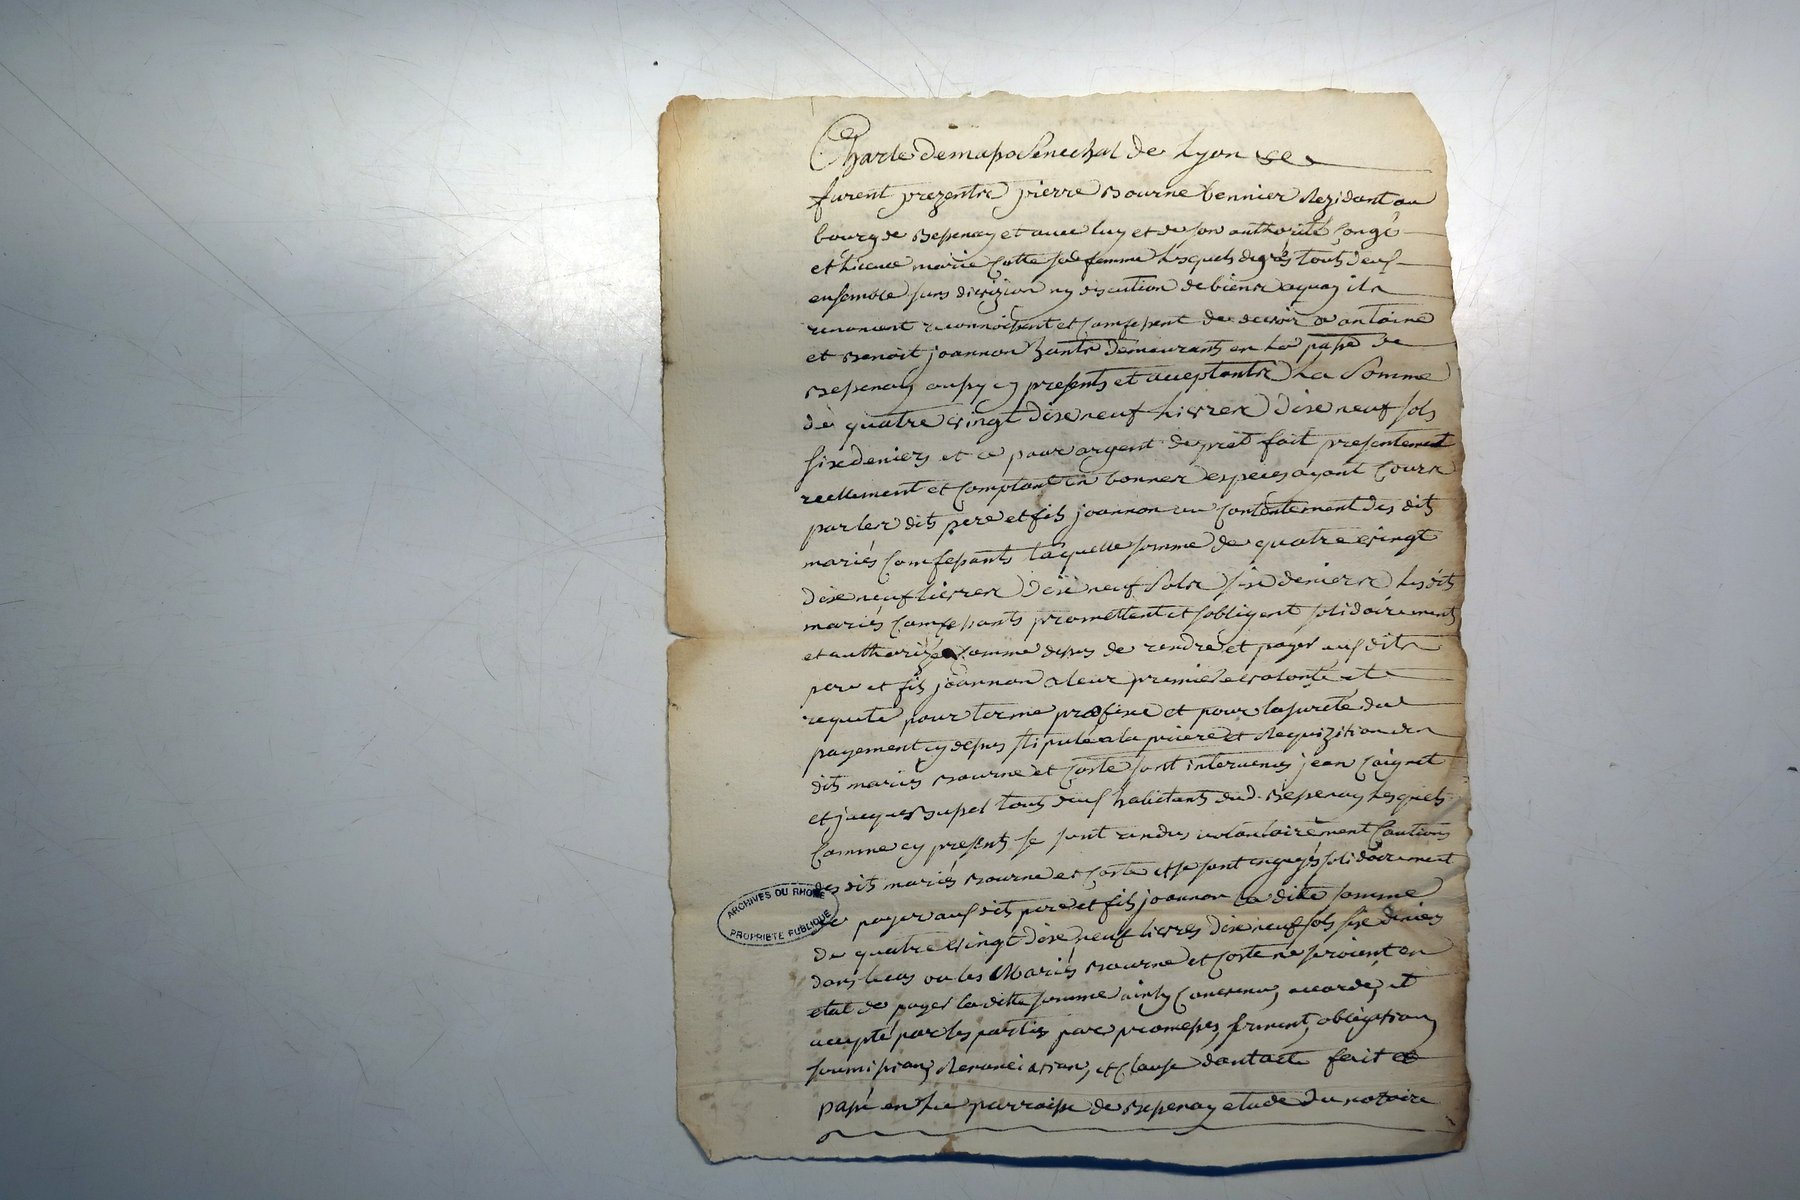 Charle Demaso Senechal de Lyon &c
furent prezents pierre Bourne vennier Rezidant au
bourg de Bessenay et avec luy et de son authorité Congé
et Licence marie Coste sa femme Lesquels de grés touts deuf
ensemble sans divizion ny discution de biens aquoy ils
renoncent reconnoissent et Confessent de devoir a antoine
et Benoit joannon demeurants en La passe de
Bessenay aussy cy presents et acceptants La Somme
de quatre vingt dixe neuf Livres dixe neuf sols
six deniers et ce pour argent de prêt fait presentement
reellement et Comptant en bonnes especes ayant Cours
par les dits pere et fils joannon au Contentement des dits
mariés Confessants laquelle somme de quatre vingt
dixe neuf livres dixe neuf Sols six deniers Les dits
mariés Confessants promettent et sobligent solidairement
et authorizée Comme dessus de rendre et payer aus dits
pere et fils joannon a leur premiere volonté et
requete pour terme præfixe et pour la sureté du
payement cy dessus stipulé a la priere et Requizition des
dits mariés Bourne et Coste sont intervenus jean Caignet
et jacque Bussel touts deuf habitants dud. Bessenay Lesquels
Comme cy presents se sont rendus volontairement Cautions
des dits mariés Bourne et Coste et se sont engagés solidairement
de payer aus dits pere et fils joannon la dite somme
de quatre vingt dixe neuf livres dixe neuf sols sixe deniers
dans le cas ou les Mariés Bourne et Coste ne seroient en
etat de payer la ditte somme ainsy Convenu, accordé, et
accepté par les parties par promesses, serment, obligation,
soumission, Renunciation, et Clause dont acte fait et
passé en La parroisse de Bessenay etude du notaire
ARCHIVES DU RHONE
PROPRIETE PUBLIQUE